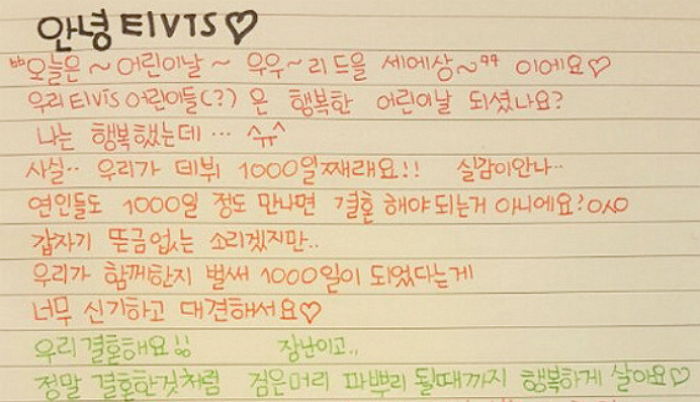 안녕 ELVIS♡
"오늘은~어린이날~ 우우~리드을 세에상~" 이에요♡
우리 ELVIS 어린이들(?) 은 행복한 어린이날 되셨나요?
나는 행복했는데... ^ㅠ^
사실.. 우리가 데뷔 1000일째래요!! 실감이안나..
연인들도 1000일 정도 만나면 결혼 해야되는거 아니에요?ㅇㅅㅇ
갑자기 뜬금없는 소리겠지만..
우리가 함께한지 벌써 1000일이 되었다는게
너무 신기하고 대견해서요♡
우리결혼해요!! 장난이고..
정말 결혼한것처럼 검은머리 파뿌리 될때까지 행복하게 살아요♡